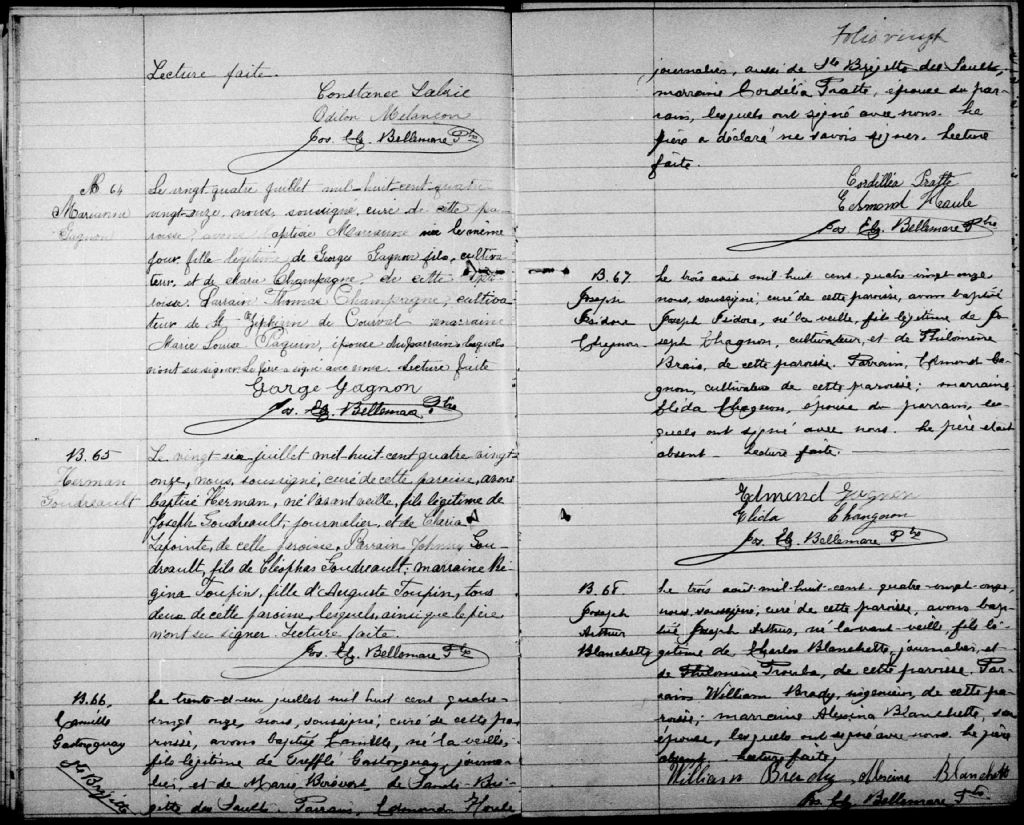 Lecture faite.
Constance Labrie
Odilon Melançon
Jos. El. Bellemare Ptre
B 64
Marianne
Gagnon
Le vingt-quatre juillet mil-huit-cent-quatre
vingt-onze, nous, soussigné, curé de cette pa-
roisse, avons baptisé Marianne née le même
jour fille légitime de Georges Gagnon fils, cultiva-
teur et de Champagne, de cette pa-
roisse. Parrain Thomas Champagne, cultiva-
teur de St Zéphirin de Courval marraine
Marie Louise Paquin, épouse du parrain lesquels
n'ont su signer. Le père a signé avec nous. Lecture faite
George Gagnon
Jos. El. Bellemare Ptre
B. 65
Herman
Goudreault
Le vingt-six juillet mil-huit-cent quatre vingt
onze, nous, soussigné, curé de cette paroisse, avons
baptisé Herman, né l'avant veille, fils légitime de
Joseph Goudreault, journalier, et de
Lapointe, de cette paroisse. Parrain Johnny Gou-
dreault, fils de Cléophas Goudreault; marraine Ré-
gina Toupin, fille d'Auguste Toupin, tous
deux de cette paroisse, lesquels, ainsi que le père
n'ont su signer. Lecture faite.
Jos. El. Bellemare Ptre
B. 66,
Camille
Gastonguay
Ste Brigitte
Le trente-et-un juillet mil huit cent quatre-
vingt onze, nous, soussigné, curé de cette pa
roisse, avons baptisé Camille, né la veille,
fils légitime de Trefflé Gastonguay, journa-
lier, et de Marie, de Sainte-Bri-
gitte des Saults. Parrain, Edmond Houle
Folio vingt
journalier, aussi de Ste Brigitte des Saults,
marraine Cordélia Pratte, épouse du par-
rain, lesquels ont signé avec nous. Le
père a déclaré ne savoir signer. Lecture
faite.
Cordiller Pratte
Edmond Haule
Jos. El. Bellemare Ptre
B. 67
Joseph
Isidore
Chagnon
Le trois août mil huit cent, quatre-vingt onze
nous, soussigné, curé de cette paroisse, avons baptisé
Joseph Isidore, né la veille, fils légitime de Jo-
seph Chagnon, cultivateur, et de Philomène
Brais, de cette paroisse. Parrain, Edmond Ga-
gnon, cultivateur de cette paroisse; marraine
Elida Chagnon, épouse du parrain, les
quels ont signé avec nous. Le père était
absent. Lecture faite.
Edmond Gagnon
Elida Changnon
Jos. El. Bellemare Ptre
B. 68
Joseph
Arthur
Blanchette
Le trois août mil-huit-cent-quatre-vingt-onze,
nous, soussigné, curé de cette paroisse, avons bap-
tisé Joseph Arthur, né l'avant-veille, fils lé-
gitime de Charles Blanchette, journalier, et
de Philomène, de cette paroisse. Par-
rain William Brady, ingénieur, de cette pa-
roisse; marraine Alexina Blanchette, son
épouse, lesquels ont signé avec nous. Le père
absent. Lecture faite,
William Brady Blanchette
Jos. El. Bellemare Ptre